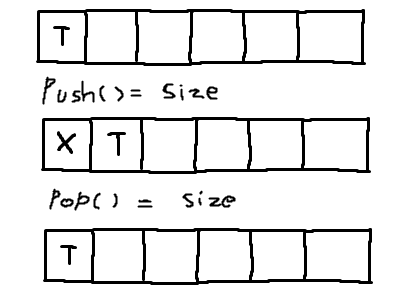 T
Push()= size
X T
Pop() = size
T